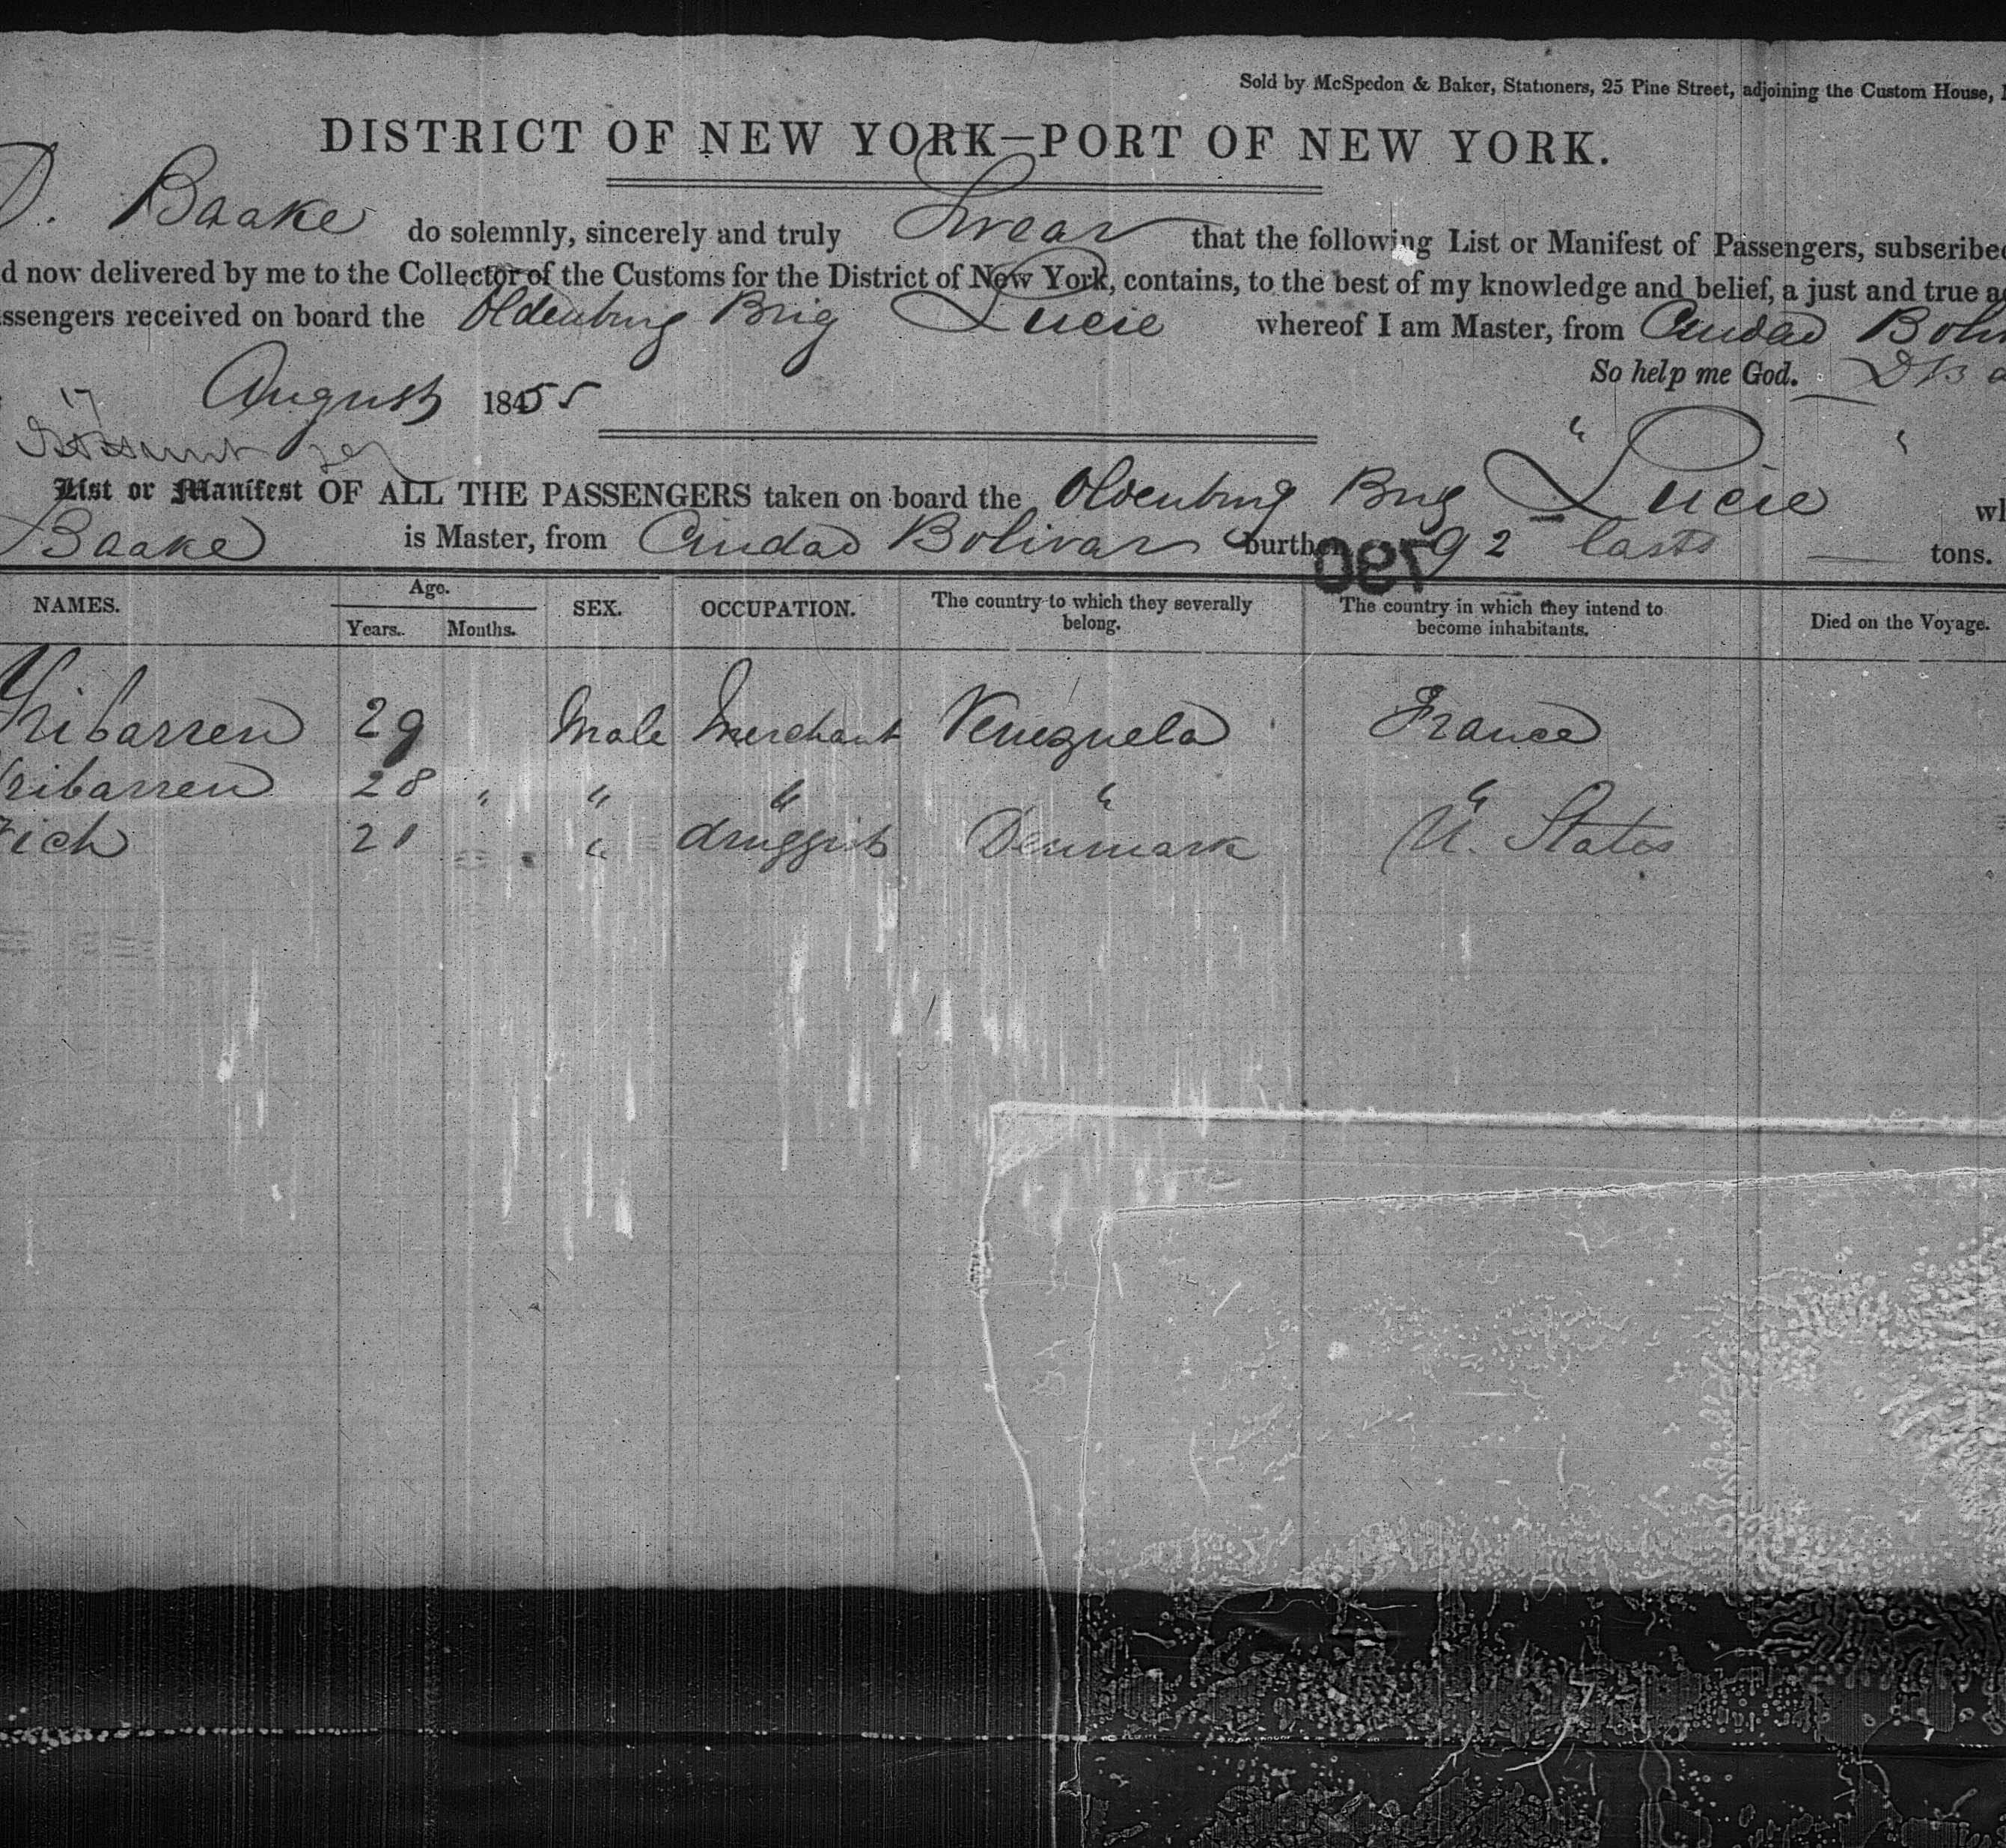 Sold by McSpedon & Baker, Stationers, 25 Pine Street, adjoining the Custom House,
DISTRICT OF NEW YORK—PORT OF NEW YORK.
D. Baake do solemnly, sincerely and truly Swear that the following List or Manifest of Passengers, subscribed
d now delivered by me to the Collector of the Customs for the District of New York, contains, to the best of my knowledge and belief, a just and true a
ssengers received on board the Oldenburg Brig Lucie whereof I am Master, from Ciudad Boli
So help me God. DB a
17 August 1855
List or Manifest OF ALL THE PASSENGERS taken on board the Oldenburg Brig Lucie wh
Baake is Master, from Ciudad Bolivar burthen 92 lasts tons.
190
NAMES. Age. Years. Months. SEX. OCCUPATION. The country to which they severally belong. The country in which they intend to become inhabitants. Died on the Voyage.
Yribarren 29 Male Merchant Venezuela France
Yribarren 28 " " " " "
ich 21 " druggist Denmark U. States